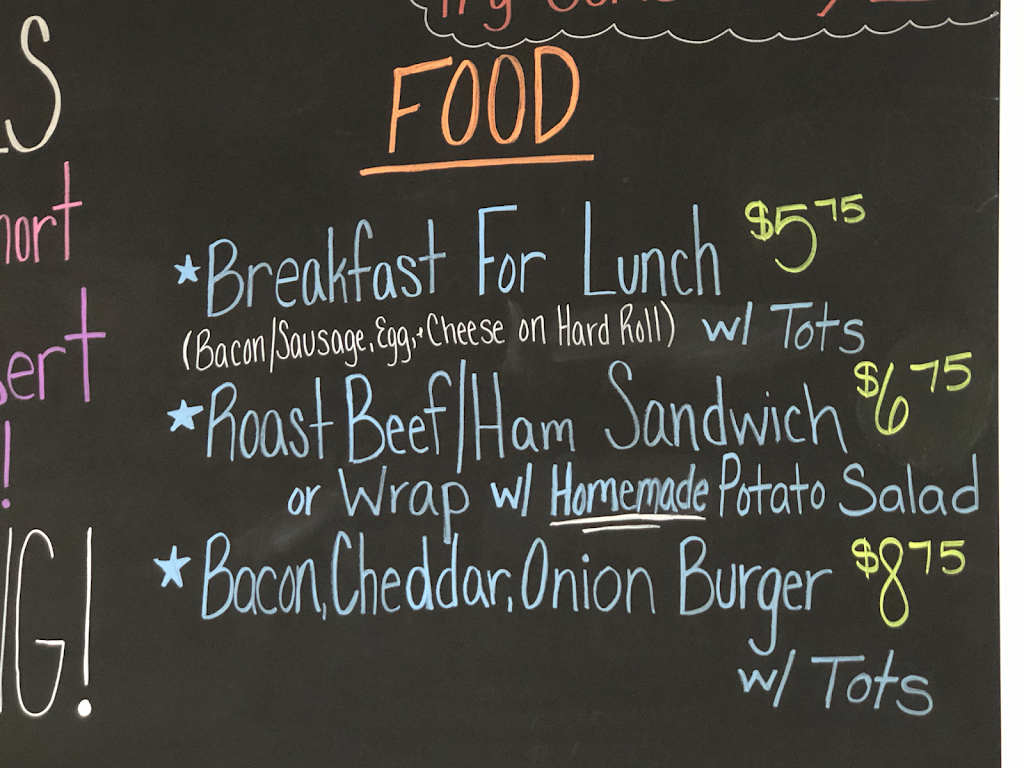 FOOD
*Breakfast For Lunch $5.75
(Bacon/Sausage, Egg, + Cheese on Hard Roll) w/ Tots
*Roast Beef/Ham Sandwich $6.75
or Wrap w/ Homemade Potato Salad
*Bacon, Cheddar, Onion Burger $8.75
w/ Tots